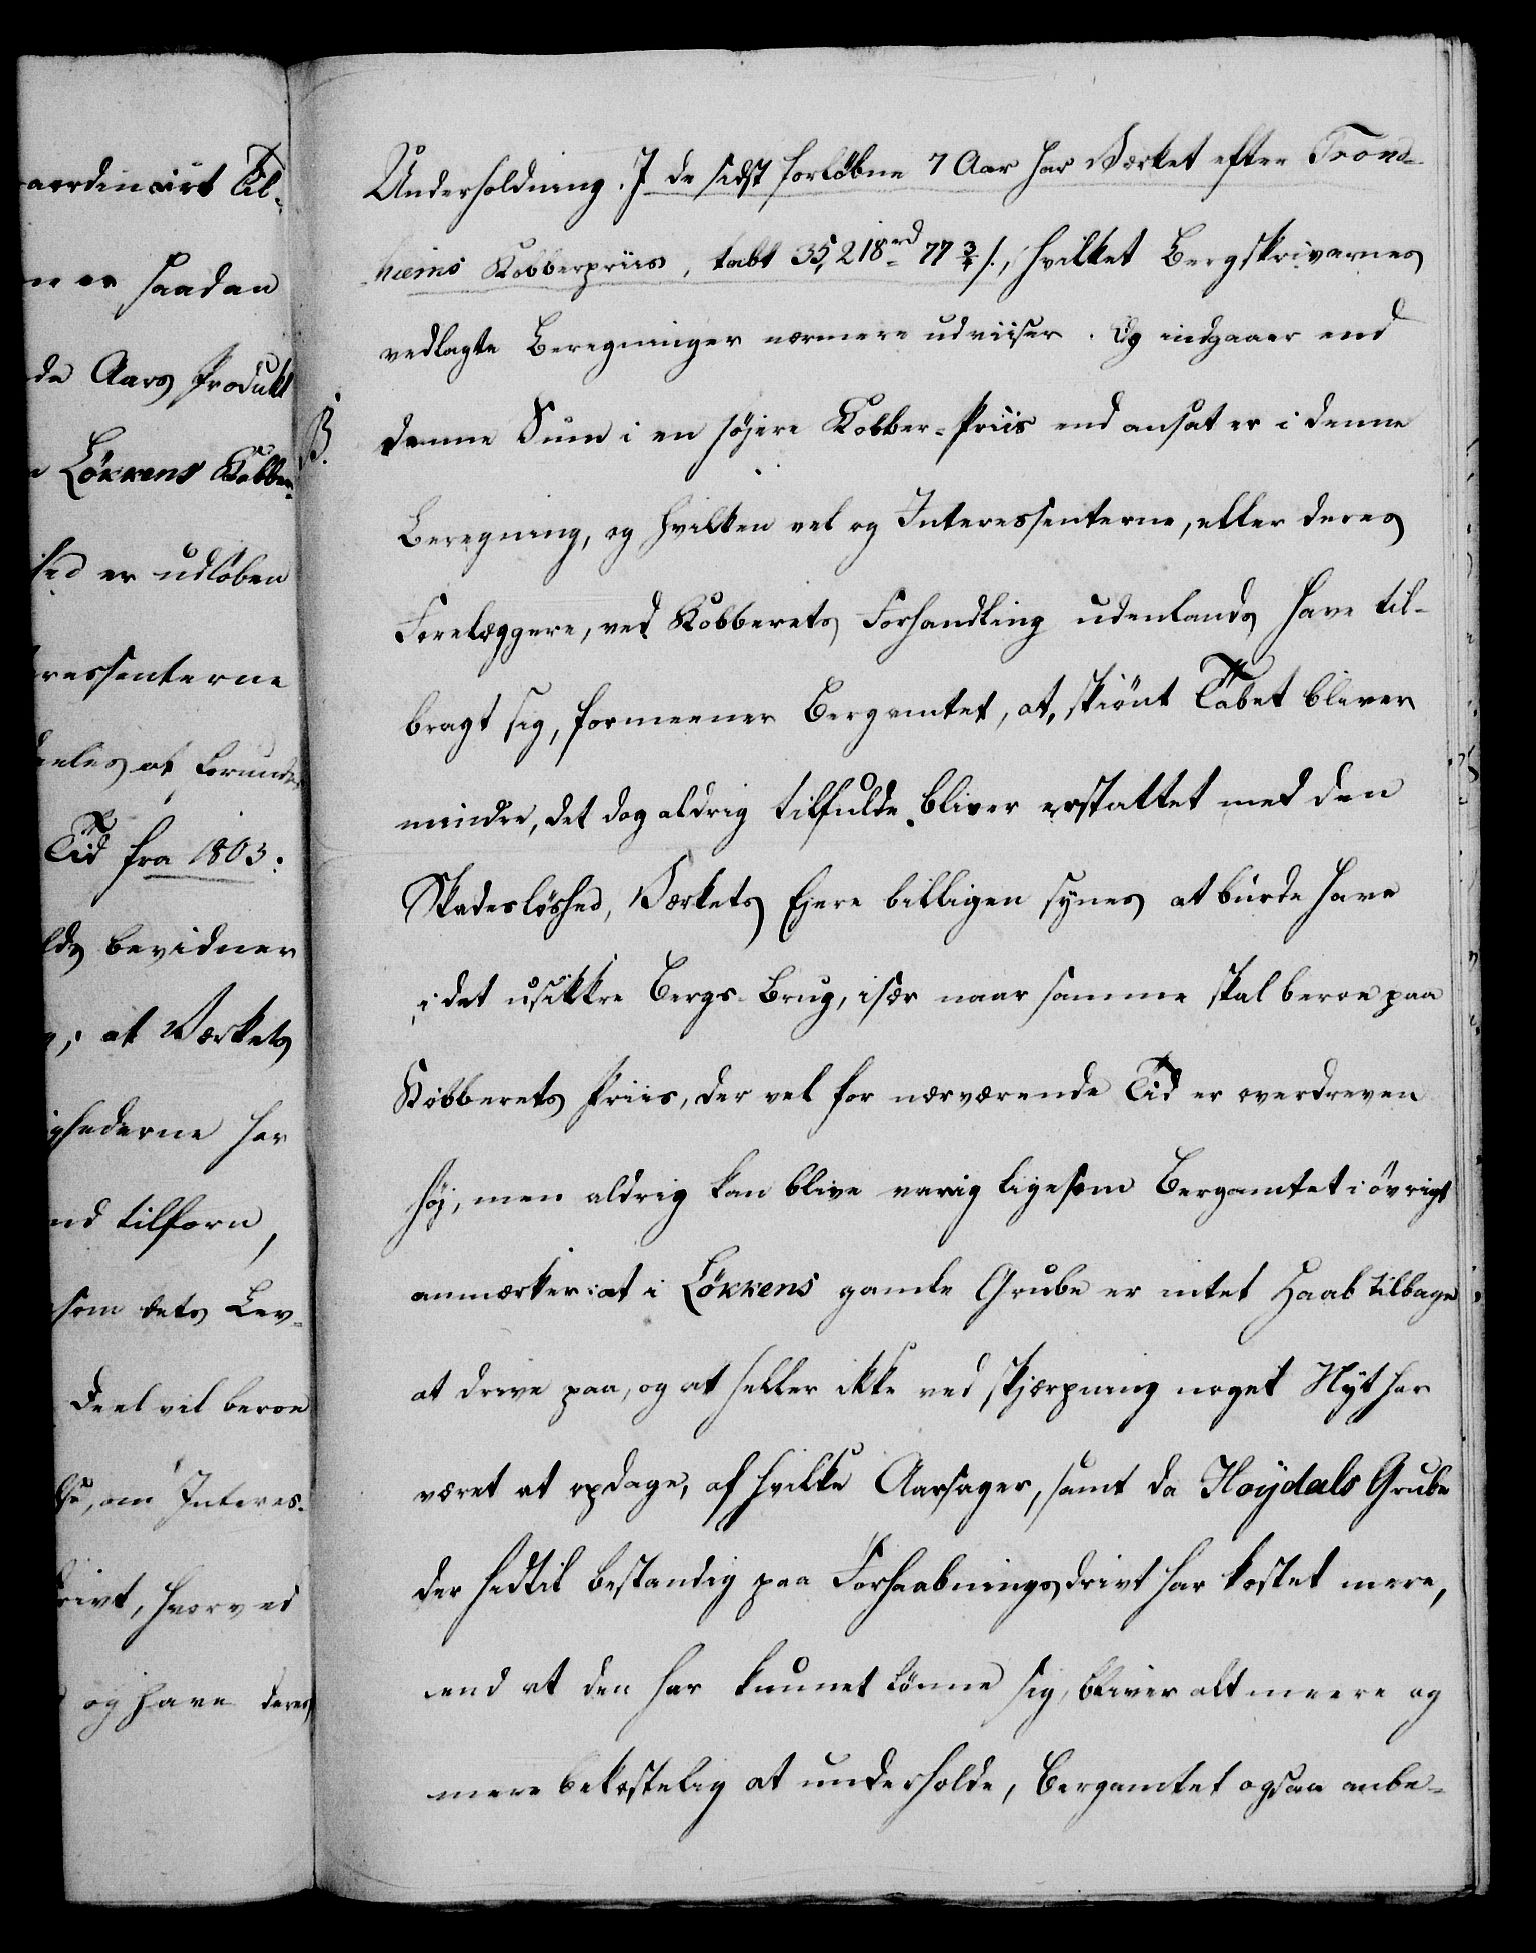 aordinairt Til-
n er saadan
de Aars Produkt
Løkkens Kobber-
hed er udløben
ressenterne
deeles at
Tid fra 1803.
bevidner
at Værkets
ighederne har
nd tilforn,
som dets Lev-
Deel vil beroe
om Interes-
drivt, hvorved
og have deres
Underholdning. I de sidst forløbne 7 Aar har Værket efter Trond-
hiems Kobberpriis, tabt 35,218rd 77 3/4 s., hvilket Bergskrivernes
vedlagte Beregninger nærmere udviiser. Og indgaaer end
B. denne Sum i en højere Kobber-Priis end ansat er i denne
Beregning, og hvilken vel og Interessenterne, eller deres
Forelæggere, ved Kobberets Forhandling udenlands have til-
bragt sig, formeener Bergamtet, at, skiönt Tabet bliver
mindre, det dog aldrig tilfulde bliver erstattet med den
Skadesløshed, Værkets Ejere billigen synes at burde have
i det usikkre Bergs-Brug, især naar samme skal beroe paa
Kobberets Priis, der vel for nærværende Tid er overdreven
høj, men aldrig kan blive varig ligesom Bergamtet i övrigt
anmærker: at i Løkkens gamle Grube er intet Haab tilbage
at drive paa, og at heller ikke ved skjærpning noget Nyt har
været at opdage, af hvilke Aarsager, samt da Høydals Grube
der hidtil bestandig paa Forhaabningsdrivt har kostet mere,
end at den har kunnet lønne sig, bliver alt meere og
mere bekostelig at underholde, Bergamtet ogsaa anbe-